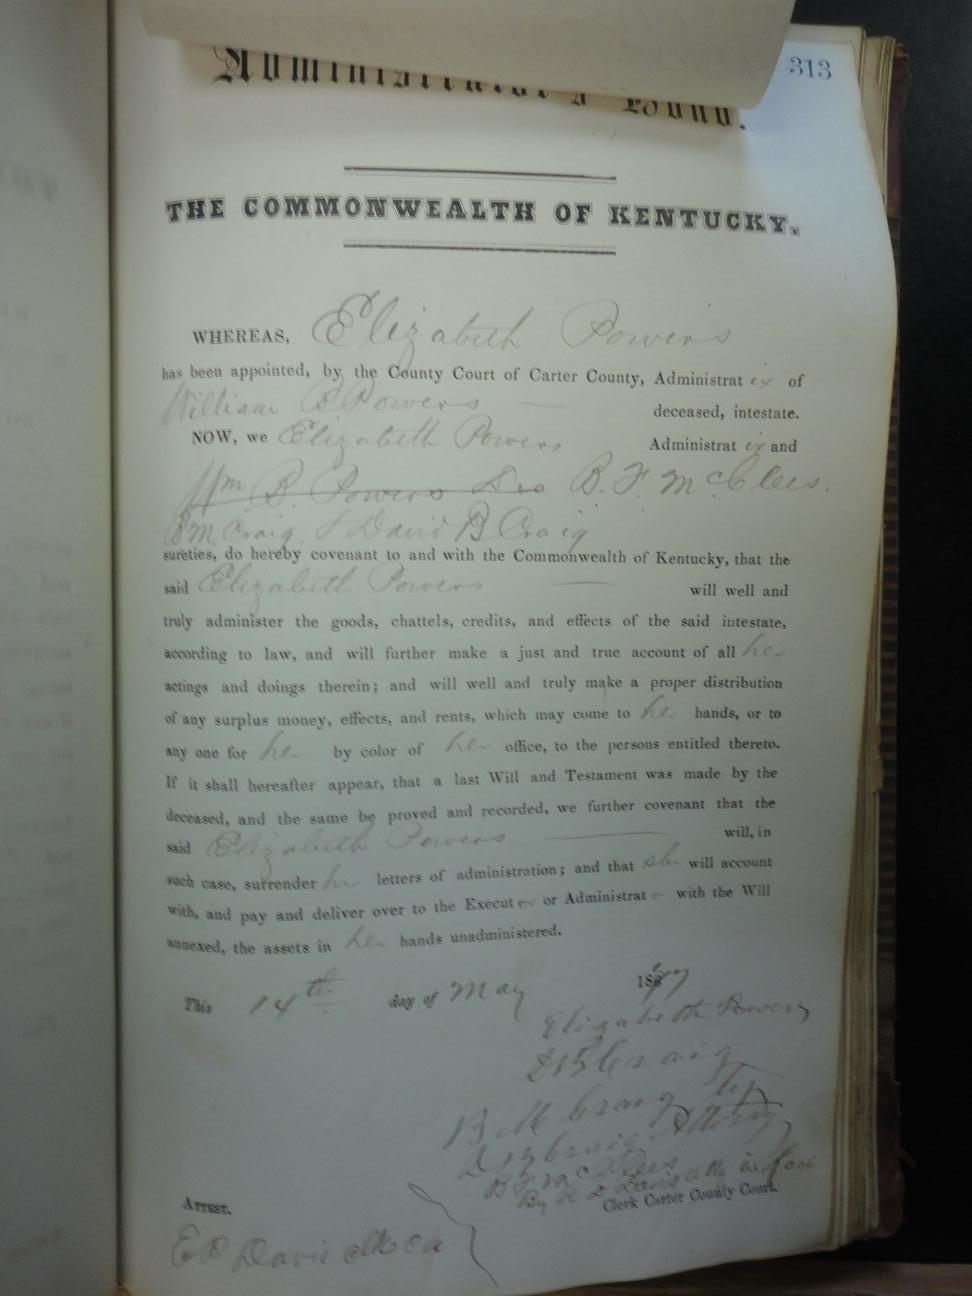 313
Administrator's Bond.
THE COMMONWEALTH OF KENTUCKY.
WHEREAS, Elizabeth Powers
has been appointed, by the County Court of Carter County, Administrat ex of
William B Powers deceased, intestate.
NOW, we Elizabeth Powers Administrat ix and
Wm B. Powers Des B. F. McClees.
B M Craig & David B Craig
sureties, do hereby covenant to and with the Commonwealth of Kentucky, that the
said Elizabeth Powers will well and
truly administer the goods, chattels, credits, and effects of the said intestate,
according to law, and will further make a just and true account of all her
actings and doings therein; and will well and truly make a proper distribution
of any surplus money, effects, and rents, which may come to her hands, or to
any one for her by color of her office, to the persons entitled thereto.
If it shall hereafter appear, that a last Will and Testament was made by the
deceased, and the same be proved and recorded, we further covenant that the
said Elizabeth Powers will, in
such case, surrender her letters of administration; and that she will account
with, and pay and deliver over to the Execut or or Administrat or with the Will
annexed, the assets in her hands unadministered.
This 14th day of May 1867
Elizabeth Powers
D B Craig
B M Craig by
D B Craig Attorny
B F McClees
By E D Davis atty in fact
Clerk Carter County Court.
ATTEST.
E D Davis clk